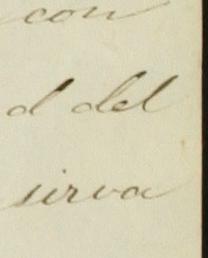 con
d del
sirva